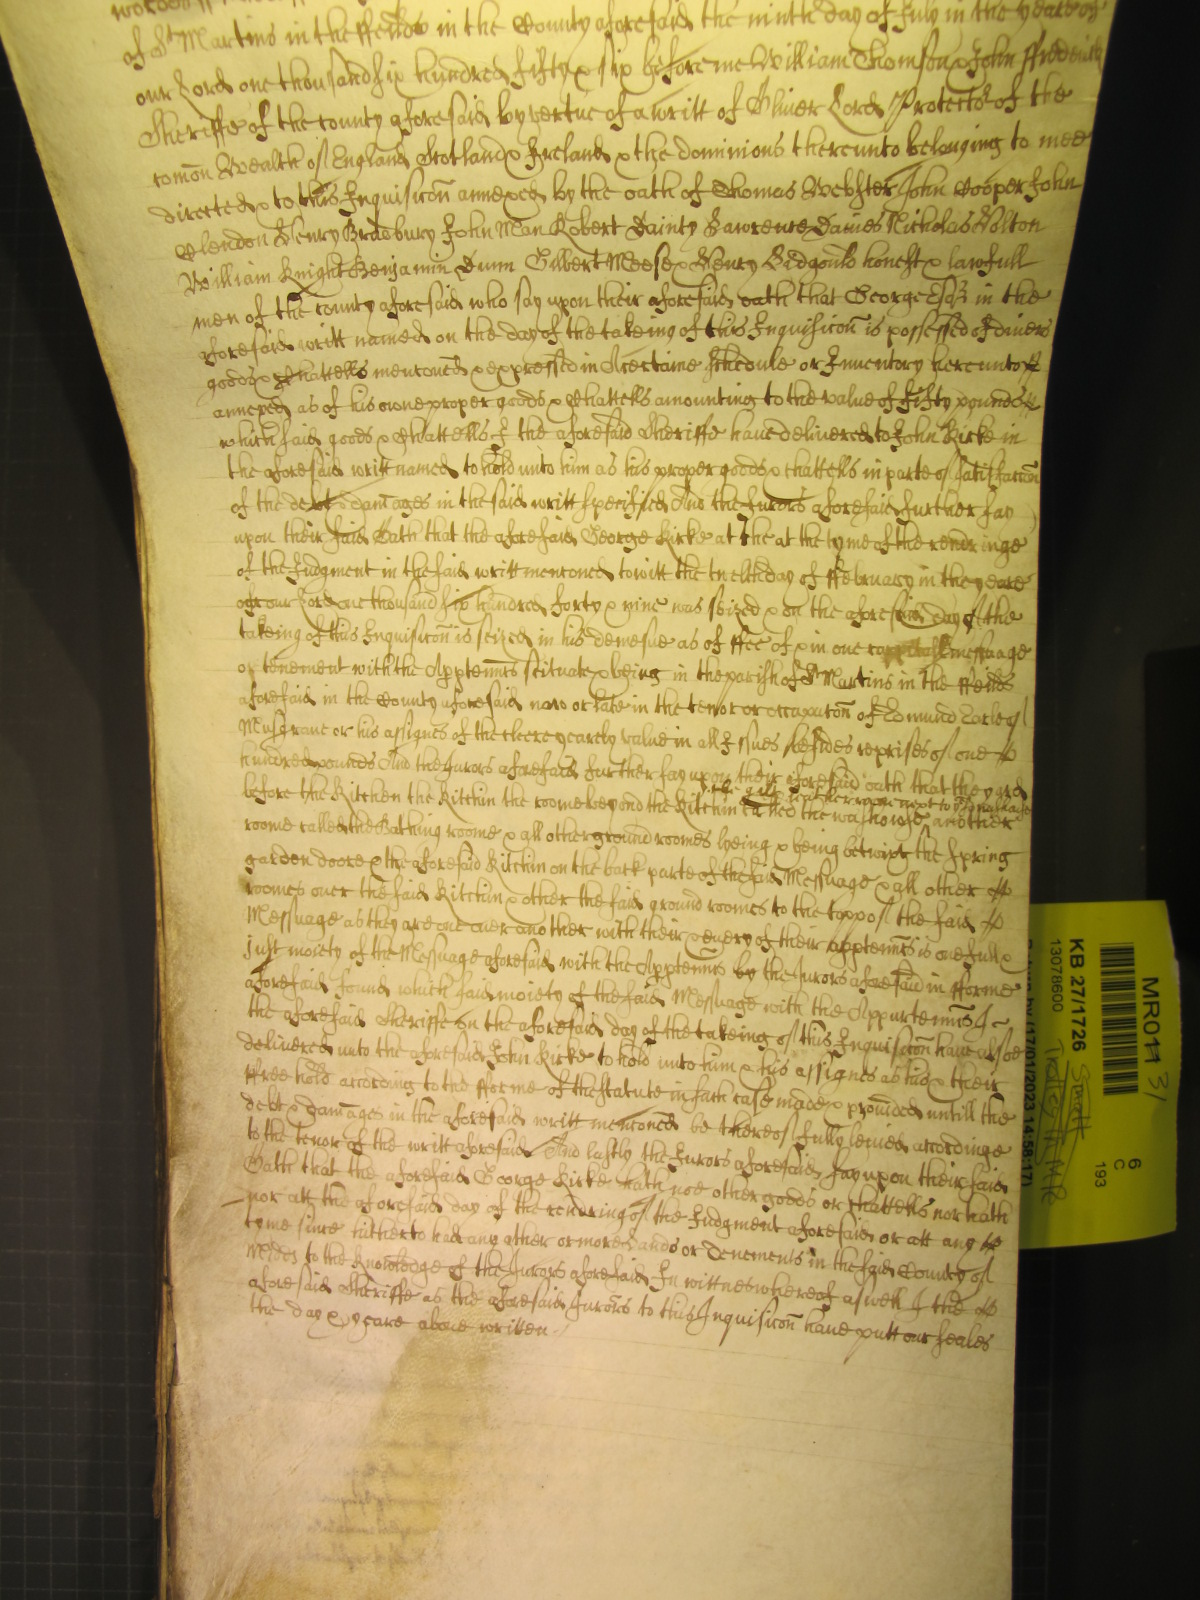 of St Martins in the ffeildes in the County aforesaid the ninth day of July in the yeare of
our Lord one thousand six hundred fifty & six before me William Thomson & John ffrederick
Sheriffe of the county aforesaid by vertue of a writt of Oliver Lord Protector of the
comon Wealth of England Scotland & Ireland & the dominions thereunto belonging to mee
directed & to this Inquisicon annexed by the oath of Thomas Webster John Cooper John
Clendon Henry Bradbury John Man Robert Dainty Lawrence Davies Nicholas Bolton
William Knight Benjamin Dunn Gilbert Meese & Henry honest & lawfull
men of the county aforesaid who say upon their aforesaid oath that George Esqr in the
aforesaid writt named on the day of the takeing of this Inquisicon is possessed of divers
goods & Chattells menconed & expressed in A certaine Schedule or Inventory hereunto
annexed as of his owne proper goods & Chattells amounting to the value of fifty pounds
which said goods & Chattells I the aforesaid Sheriffe have delivered to John Kirke in
the aforesaid writt named to hold unto him as his proper goods & chattells in parte of satisfaccon
of the debt & damages in the said writt specified And the Jurors aforesaid further say
upon their said Oath that the aforesaid George Kirke at the at the tyme of the rendringe
of the Judgment in the said writt menconed towitt the twelth day of ffebruary in the yeare
of our Lord one thousand six hundred forty & nine was seized & on the aforesaid day of the
takeing of this Inquisicon is seized in his demesne as of ffee of & in one capitall messuage
or tenement with the Apptennts scituate & being in the parish of St Martins in the ffeilds
aforesaid in the County aforesaid now or late in the tenor or occupacon of Edmund Earle of
Musgrave or his assignes of the cleere yearely value in all Issues besides reprises of one
hundred pounds And the Jurors aforesaid further say upon their aforesaid oath that the yard
before the Kitchen the Kitchin the roome beyond the Kitchin called the washowse another
roome called the Bathing roome & all other ground roomes lyeing & being betwixt the Spring
garden doore & the aforesaid Kitchin on the back parte of the said Messuage & all other
roomes over the said Kitchin & other the said ground roomes to the topp of the said
Messuage as they are one over another with their & every of their apptennts is one full &
just moiety of the Messuage aforesaid with the Apptennts by the Jurors aforesaid in fforme
aforesaid found which said moiety of the said Messuage with the Appurtennts I
the aforesaid Sheriffe on the aforesaid day of the takeing of this Inquisicon have alsoe
delivered unto the aforesaid John Kirke to hold unto him & his assignes as his & their
ffree hold according to the fforme of the statute in such case made & provided untill the
debt & damages in the aforesaid writt menconed be thereof fully levied accordinge
to the tenor of the writt aforesaid And lastly the Jurors aforesaid say upon their said
Oath that the aforesaid George Kirke hath noe other goods or Chattells nor hath
nor att the aforesaid day of the rendring of the Judgment aforesaid or att any
tyme since hitherto had any other or more Lands or Tenements in the said County of
Middx to the knowledge of the Jurors aforesaid In wittnes whereof aswell I the
aforesaid Sheriffe as the aforesaid Jurors to this Inquisicon have putt our seales
the day & yeare above written
MR011 3/
6
C
193
KB 27/1726
13078600